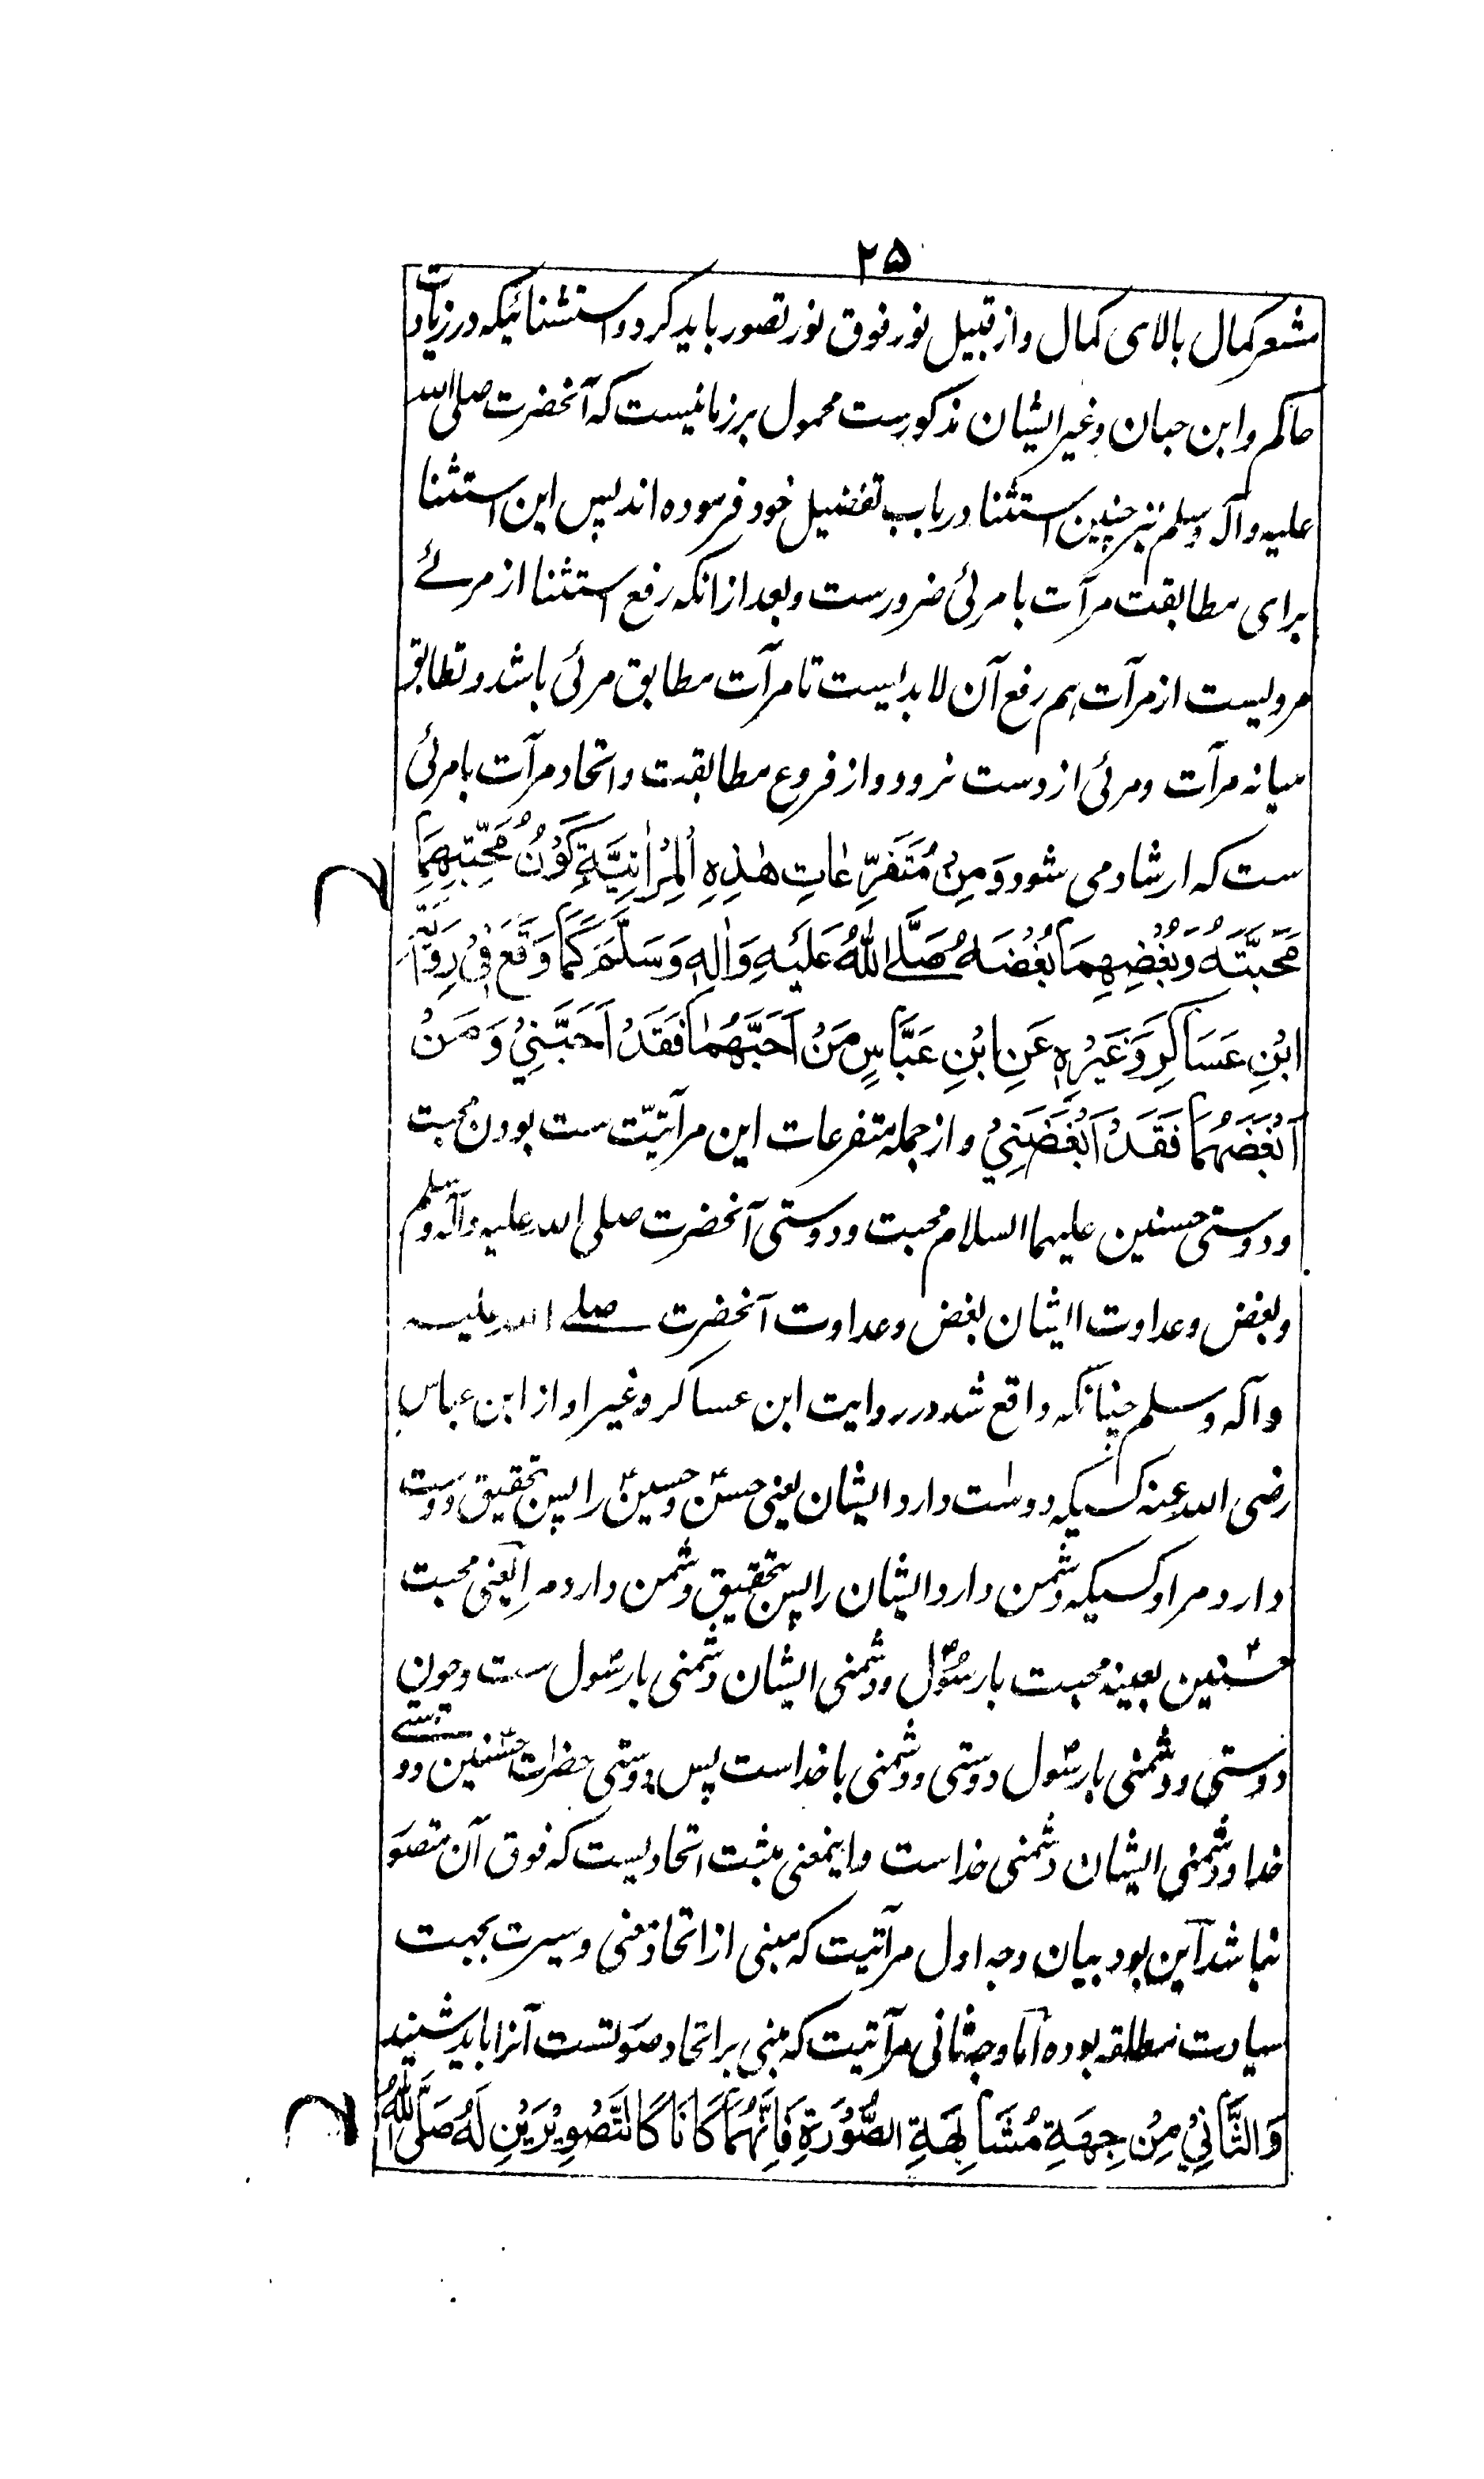 ۲۵
مشعر کمال بالای کمال و از قبیل نور فوق نور تصور باید کرد و استثنائیکه در زیادت
حاکم و ابن حبان و غیر ایشان مذکورست محمول بر زمانیست که آنحضرت صلی الله
علیه و آله وسلم نیز چنین استثنا در باب تفضیل خود فرموده اند پس این استثنا
برای مطابقت مرآت با مرئی ضرورست و بعد از انکه رفع استثنا از مرئے
مرویست از مرآت هم رفع آن لابدیست تا مرآت مطابق مرئی باشد و تطابق
میانه مرآت و مرئی از دست نرود و از فروع مطابقت و اتحاد مرآت با مرئی
ست که ارشاد می شود وَمِنْ مُتَفَرِّعَاتِ هٰذِهِ الْمِرْاٰتِيَّةِ كَوْنُ مُحَبَّتِهِمَا
مَحَبَّتَهُ وَبُغْضِهِمَا بُغْضَهُ صَلَّى اللهُ عَلَيْهِ وَاٰلِهٖ وَسَلَّمَ كَمَا وَقَعَ فِيْ رِوَايَةِ
ابْنِ عَسَاكِرَ وَغَيْرِهٖ عَنِ ابْنِ عَبَّاسٍ مَنْ اَحَبَّهُمَا فَقَدْ اَحَبَّنِيْ وَمَنْ
اَبْغَضَهُمَا فَقَدْ اَبْغَضَنِيْ و از جمله متفرعات این مرآتیّت ست بودن محبت
و دوستی حسنین علیهما السلام محبت و دوستی آنحضرت صلی الله علیه و آله وسلم
و بغض و عداوت ایشان بغض و عداوت آنحضرت صلے الله علیه
و آله وسلم چنانکه واقع شد در روایت ابن عساکر و غیر او از ابن عباس
رضی الله عنه کسیکه دوست دارد ایشان یعنی حسن و حسین را پس تحقیق دوست
دارد مرا و کسیکه دشمن دارد ایشان را پس تحقیق دشمن دارد مرا یعنی محبت
حسنین بعینه محبت با رسول و دشمنی ایشان دشمنی با رسول ست و چون
دوستی و دشمنی با رسول دوستی و دشمنی با خداست پس دوستی حضرات حسنین دوستے
خدا و دشمنی ایشان دشمنی خداست و اینمعنی مثبت اتحادیست که فوق آن متصور
نباشد این بود بیان وجه اول مرآتیت که مبنی از اتحاد معنی و سیرت بجهت
سیادت مطلقه بوده اما وجه ثانی مرآتیت که مبنی بر اتحاد صورتست آنرا باید شنید
وَالثَّانِيْ مِنْ جِهَةِ مُشَابَهَةِ الصُّوْرَةِ فَاِنَّهُمَا كَانَا كَالتَّصْوِيْرَيْنِ لَهُ صَلَّى اللهُ